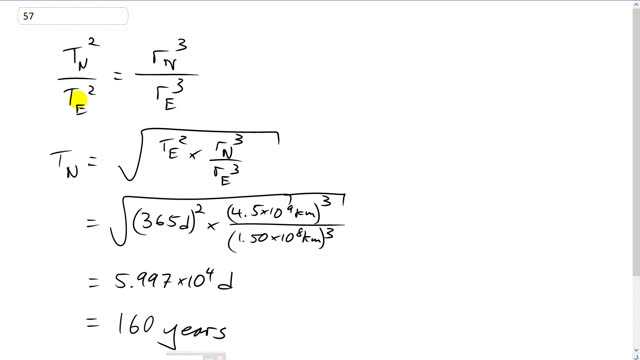 57
T_N^2 / T_E^2 = r_N^3 / r_E^3
T_N = √(T_E^2 × r_N^3 / r_E^3)
= √((365d)^2 × (4.5×10^9 km)^3 / (1.50×10^8 km)^3)
= 5.997×10^4 d
= 160 years